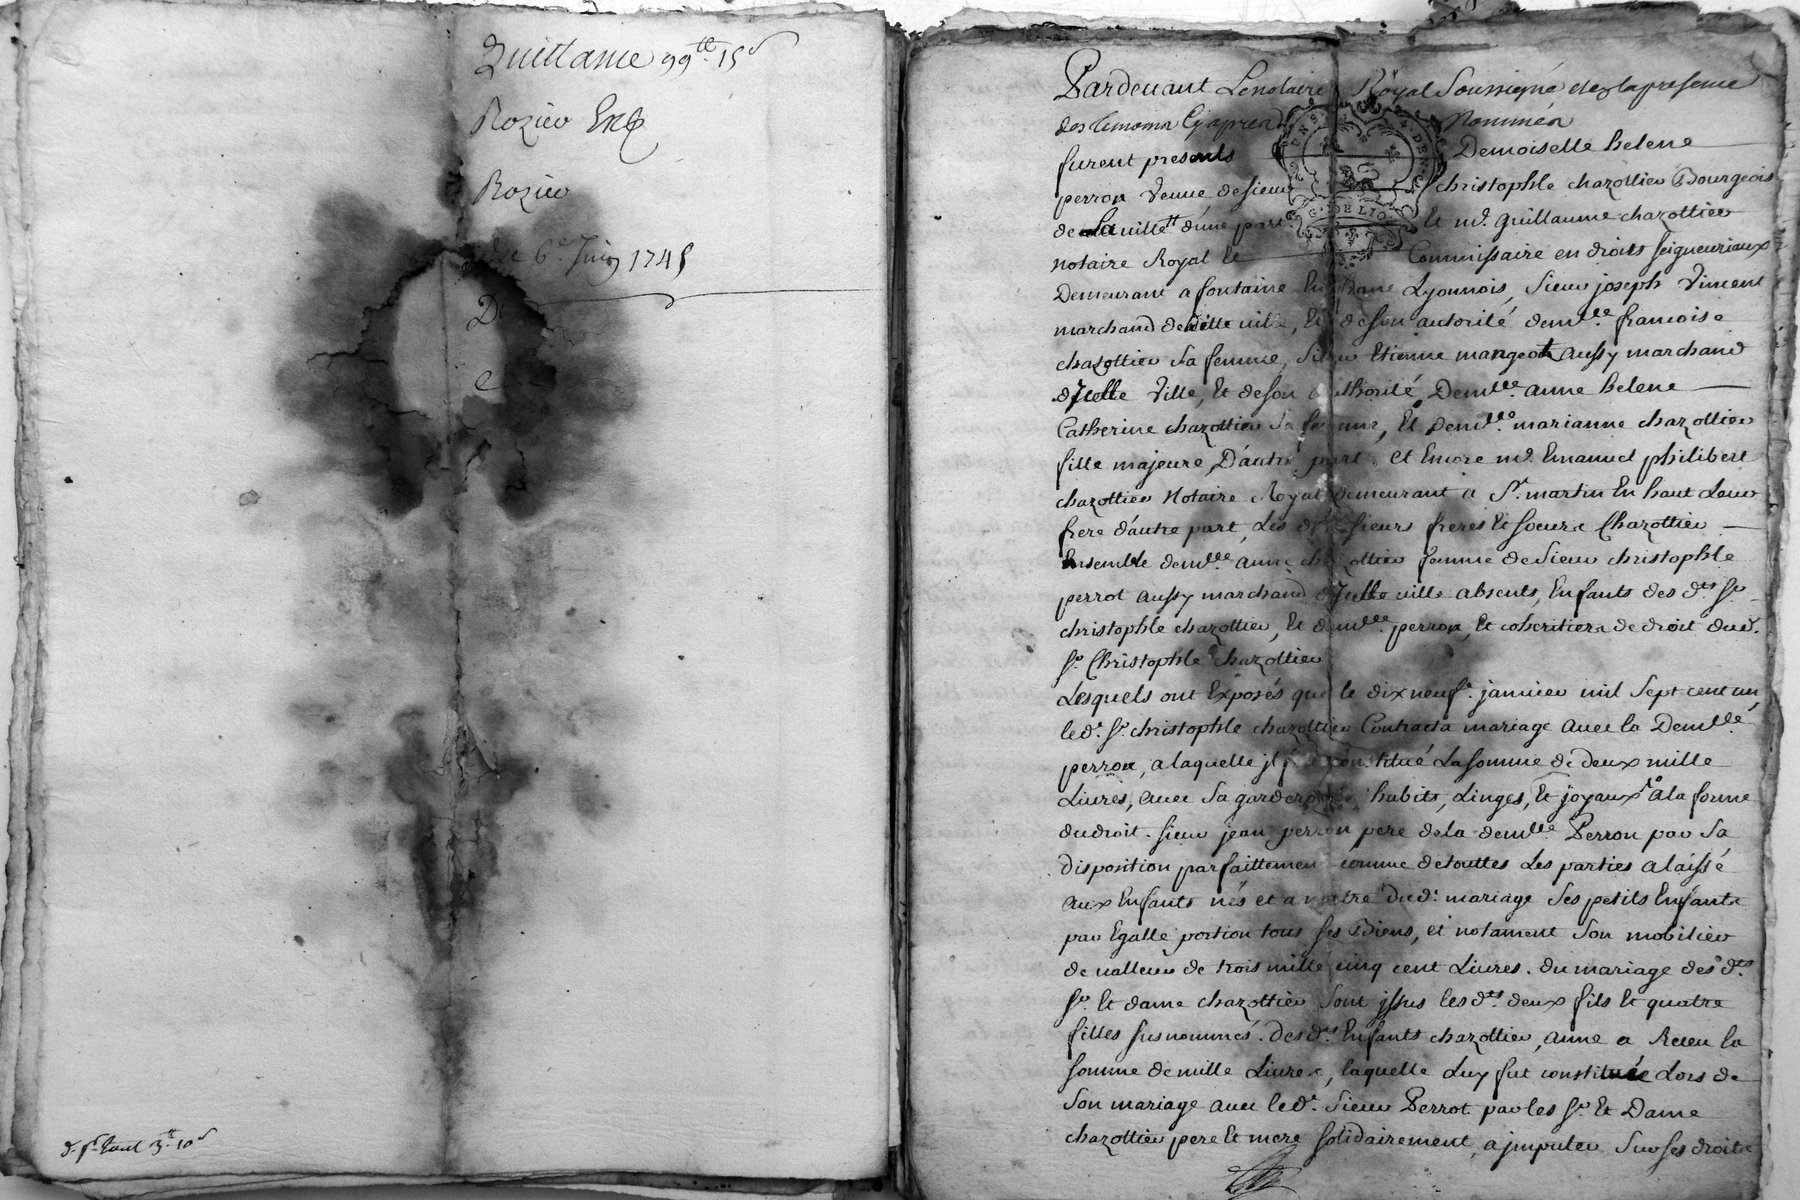 Quittance 99tt 15s
Rozier
Rozier
6e Juin 1745
D
e
d. pr tout 3tt 10s
Pardevant Lenotaire Royal Soussigné et enla presence
des temoins Cyapres Nommés
furent presents Demoiselle helene
perron veuve desieur christophle chazottier Bourgeois
de Laville d'une part Et me. Guillaume chazottier
notaire Royal le Commissaire en droits seigneuriaux
Demeurant a fontaine En Lyonnois, Sieur joseph Viment
marchand deditte ville, Et deson autorité demlle. francoise
chazottier Sa femme, Sieur Etienne mangeot aussy marchand
d'Icelle Ville, Et deson authorité Demlle. anne helene
Catherine chazottier Sa femme, Et demlle. marianne chazottier
fille majeure, D'autre part, et Encore me. Emanuel philibert
chazottier Notaire Royal demeurant a St. martin En haut Leur
frere d'autre part, Les dts. sieurs freres Et soeurs Chazottier
Ensemble demlle. anne chazottier femme de Sieur christophle
perrot aussy marchand d'Icelle ville absents, Enfants des dts. sr.
christophle chazottier, Et demlle. perron, Et coheritiers de droit dud.
sr. Christophle chazottier
Lesquels ont Exposés que le dix neufe. janvier mil Sept cent un
led. sr. christophle chazottier Contracta mariage avec la Demlle.
perron, a laquelle il fut constitué Lasomme de deux mille
Livres, avec Sa garderobbe habits, Linges, Et joyaux a la forme
dudroit. Sieur jean perron pere dela demlle Perron par Sa
disposition parfaittement connue detouttes Les parties a laissé
aux Enfants nés et a naitre dud. mariage Ses petits Enfants
par Egalle portion tous ses Biens, et notament Son mobilier
de valleur de trois mille cinq cent Livres. du mariage des dts.
sr. Et dame chazottier Sont issus les dts. deux fils Et quatre
filles susnommés. Des dts. Enfants chazottier, anne a Receu la
somme de mille Livres, laquelle Luy fut constituée Lors de
Son mariage avec led. Sieur Perrot par les sr. Et Dame
chazottier pere Et mere solidairement, a imputer Sur ses droits